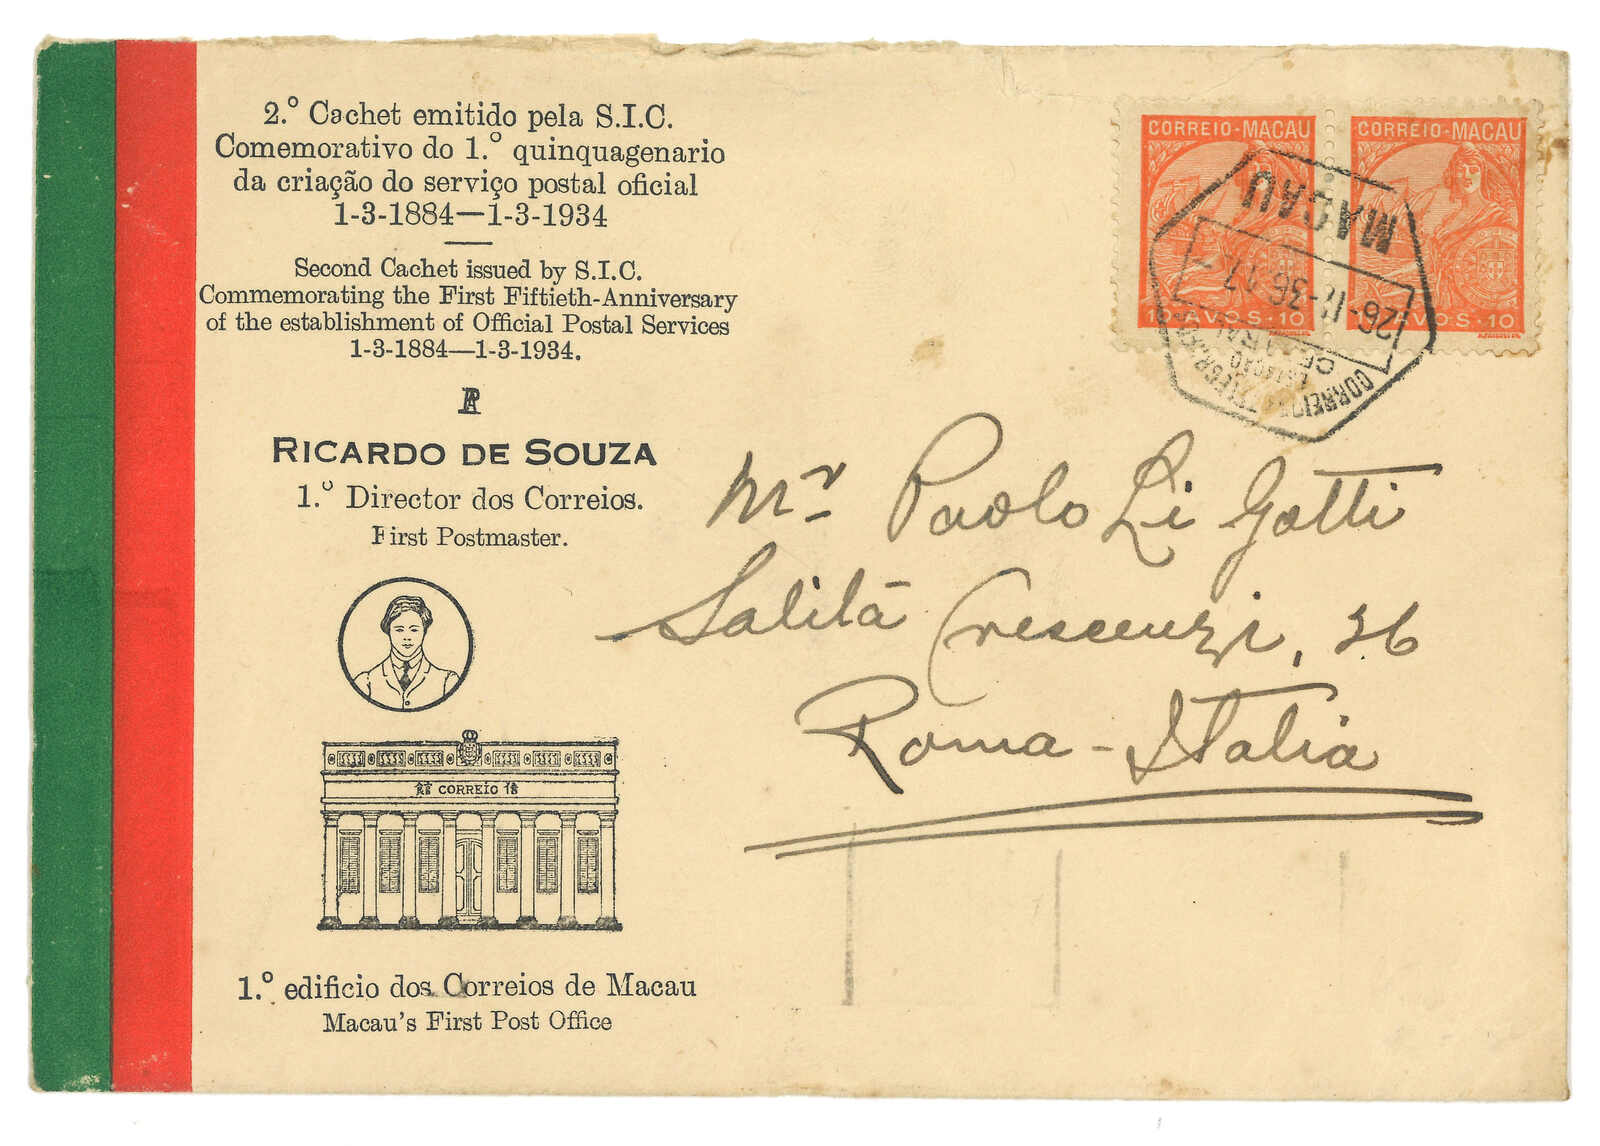 2.º Cachet emitido pela S.I.C.
Comemorativo do 1.º quinquagenario
da criação do serviço postal oficial
1-3-1884—1-3-1934
Second Cachet issued by S.I.C.
Commemorating the First Fiftieth-Anniversary
of the establishment of Official Postal Services
1-3-1884—1-3-1934.
RICARDO DE SOUZA
1.º Director dos Correios.
First Postmaster.
CORREIO
1.º edificio dos Correios de Macau
Macau's First Post Office
CORREIO-MACAU
10·AVOS·10
CORREIO-MACAU
AVOS·10
MACAU
CORREIOS
Mr Paolo Li Gotti
Salità Crescenzi, 26
Roma - Italia